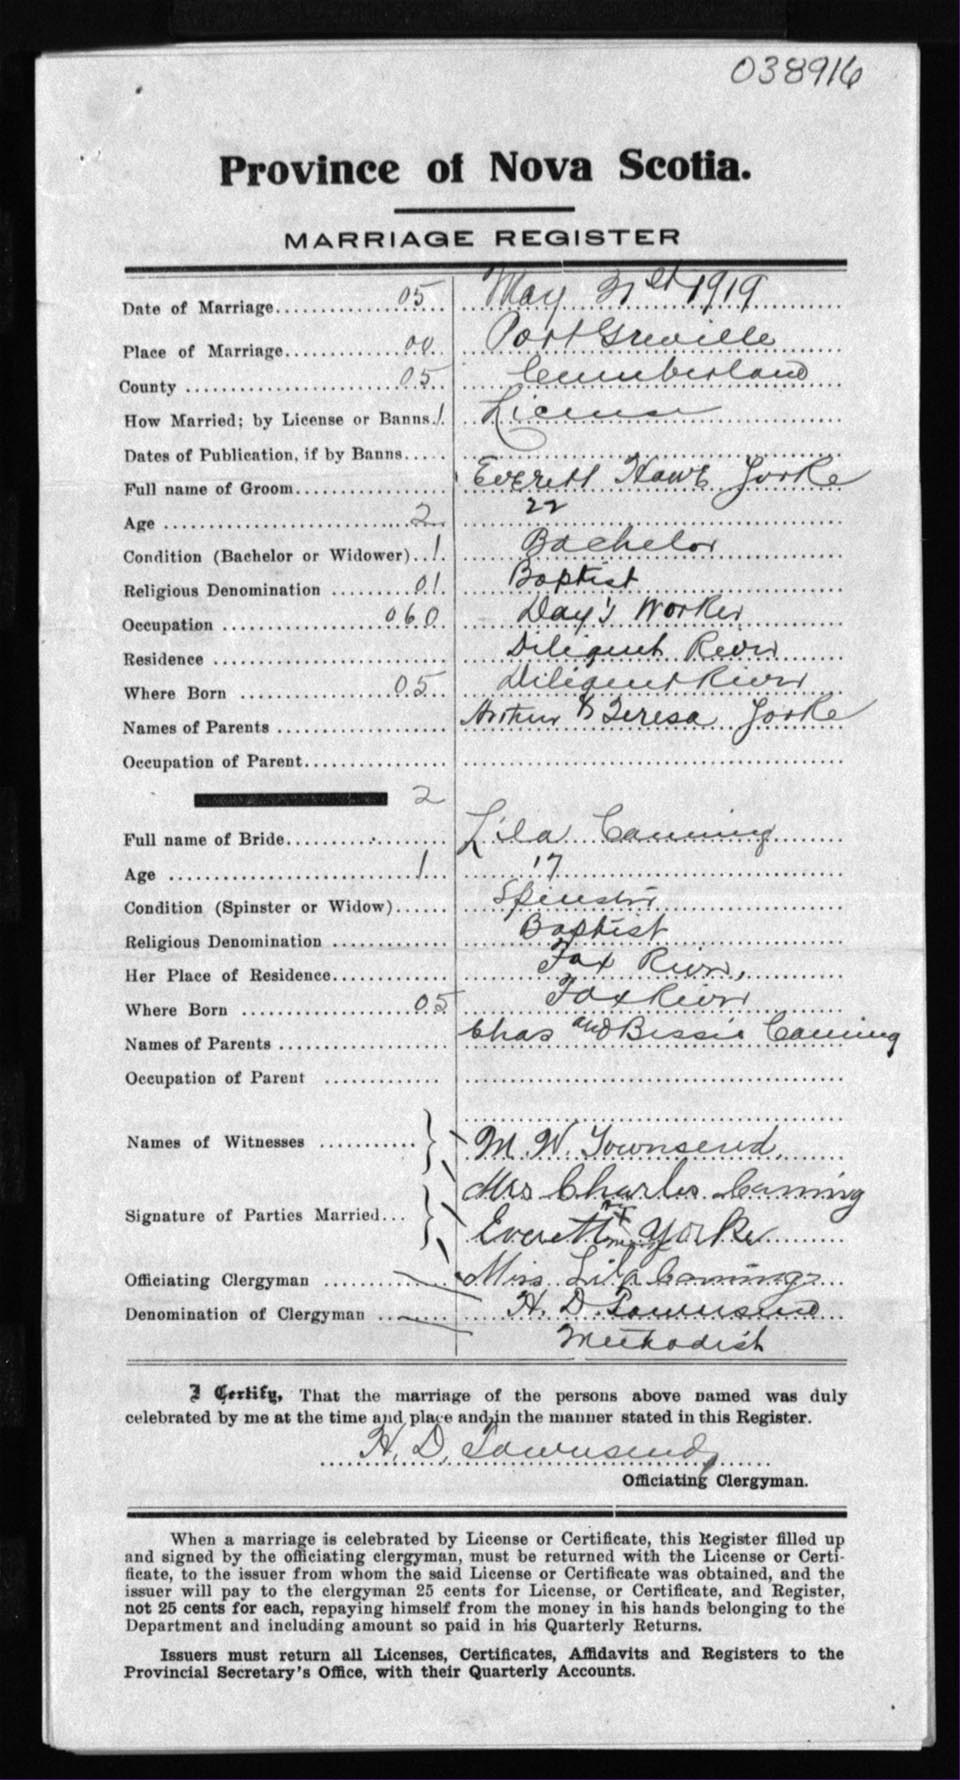 038916
Province of Nova Scotia.
MARRIAGE REGISTER
Date of Marriage 05 May 31st 1919
Place of Marriage 00 Port Greville
County 05 Cumberland
How Married; by License or Banns 1 License
Dates of Publication, if by Banns
Full name of Groom Everett Yorke
Age 2 22
Condition (Bachelor or Widower) 1 Bachelor
Religious Denomination 01 Baptist
Occupation 060 Day's Worker
Residence Diligent River
Where Born 05 Diligent River
Names of Parents Arthur & Teresa Yorke
Occupation of Parent
2
Full name of Bride Lila Canning
Age 1 17
Condition (Spinster or Widow) Spinster
Religious Denomination Baptist
Her Place of Residence Fox River,
Where Born 05 Fox River
Names of Parents Chas and Bessie Canning
Occupation of Parent
Names of Witnesses M. W. Townsend.
Mrs Charles Canning
Signature of Parties Married Everett Yorke
Officiating Clergyman Miss Lila Canning
Denomination of Clergyman H. D. Townsend
Methodist
I Certify, That the marriage of the persons above named was duly
celebrated by me at the time and place and in the manner stated in this Register.
H. D. Townsend
Officiating Clergyman.
When a marriage is celebrated by License or Certificate, this Register filled up
and signed by the officiating clergyman, must be returned with the License or Certi-
ficate, to the issuer from whom the said License or Certificate was obtained, and the
issuer will pay to the clergyman 25 cents for License, or Certificate, and Register,
not 25 cents for each, repaying himself from the money in his hands belonging to the
Department and including amount so paid in his Quarterly Returns.
Issuers must return all Licenses, Certificates, Affidavits and Registers to the
Provincial Secretary's Office, with their Quarterly Accounts.